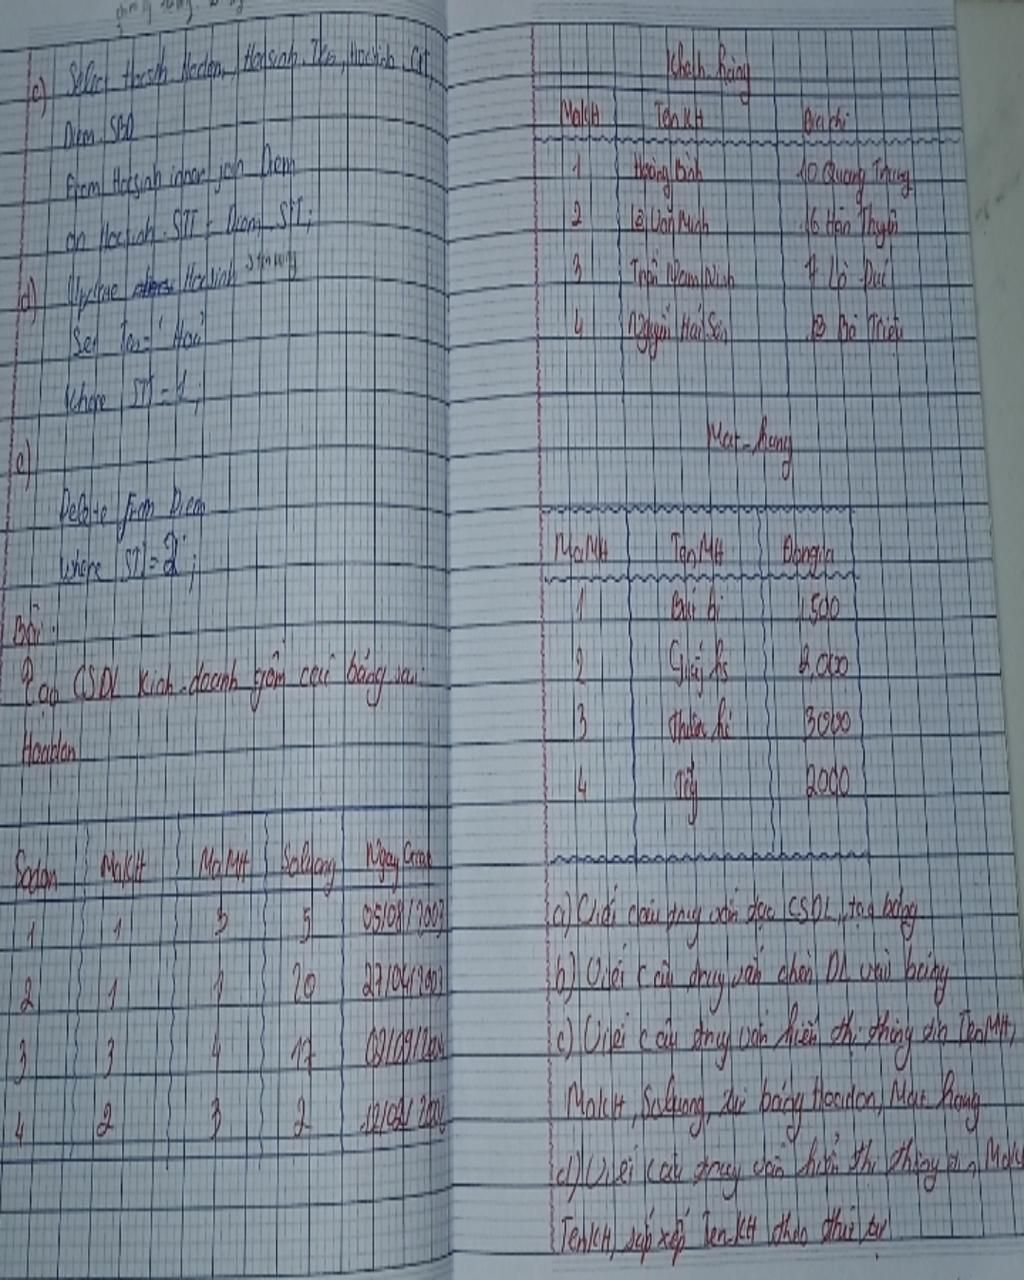 c) Select Hocsinh Hodem, Hocsinh. Ten, Hocsinh. GT,
Diem. SBD
From Hocsinh inner join Diem
on Hocsinh. STT = Diem. STT;
d) Update Hocsinh
Set Ten= 'Hoa'
Where STT = 1;
e)
Delete from Diem
Where STT = 2;
Bài:
Tạo CSDL Kinh-doanh gồm các bảng sau:
Hoadon
Sodon MaKH MaMH Soluong Ngay
1 1 3 5 05/08/2003
2 1 1 20 27/04/2003
3 3 4 17
4 2 3 2
Khach_hàng
MaKH TenKH Địa chỉ
1 Hoàng Bình 10 Quang Trung
2 Lê Văn Minh 16 Hàn Thuyên
3 Trần Nam Ninh 7 Lò Đúc
4 Nguyễn Hải Sơn Bà Triệu
Mat_hang
MaMH TenMH Dongia
1 Bút bi 1.500
2 Giấy hs 2.000
3 Thước kẻ 3000
4 Tẩy 2000
a) Viết câu truy vấn tạo CSDL, tạo bảng
b) Viết câu truy vấn chèn DL vào bảng
c) Viết câu truy vấn hiển thị thông tin TenMH,
MaKH, Soluong, từ bảng Hoadon, Mat_hang
d) Viết câu truy vấn hiển thị thông tin
TenKH, sắp xếp TenKH theo thứ tự